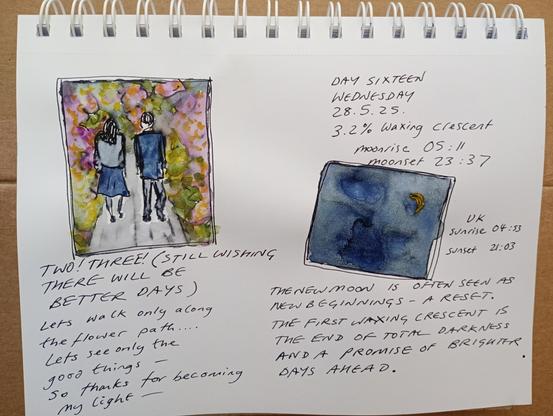 TWO! THREE! (STILL WISHING
THERE WILL BE
BETTER DAYS)
Lets walk only along
the flower path....
Lets see only the
good things —
So thanks for becoming
my light —
DAY SIXTEEN
WEDNESDAY
28.5.25.
3.2% Waxing Crescent
moonrise 05:11
moonset 23:37
UK
sunrise 04:53
sunset 21:03
THE NEW MOON IS OFTEN SEEN AS
NEW BEGINNINGS – A RESET.
THE FIRST WAXING CRESCENT IS
THE END OF TOTAL DARKNESS
AND A PROMISE OF BRIGHTER
DAYS AHEAD.